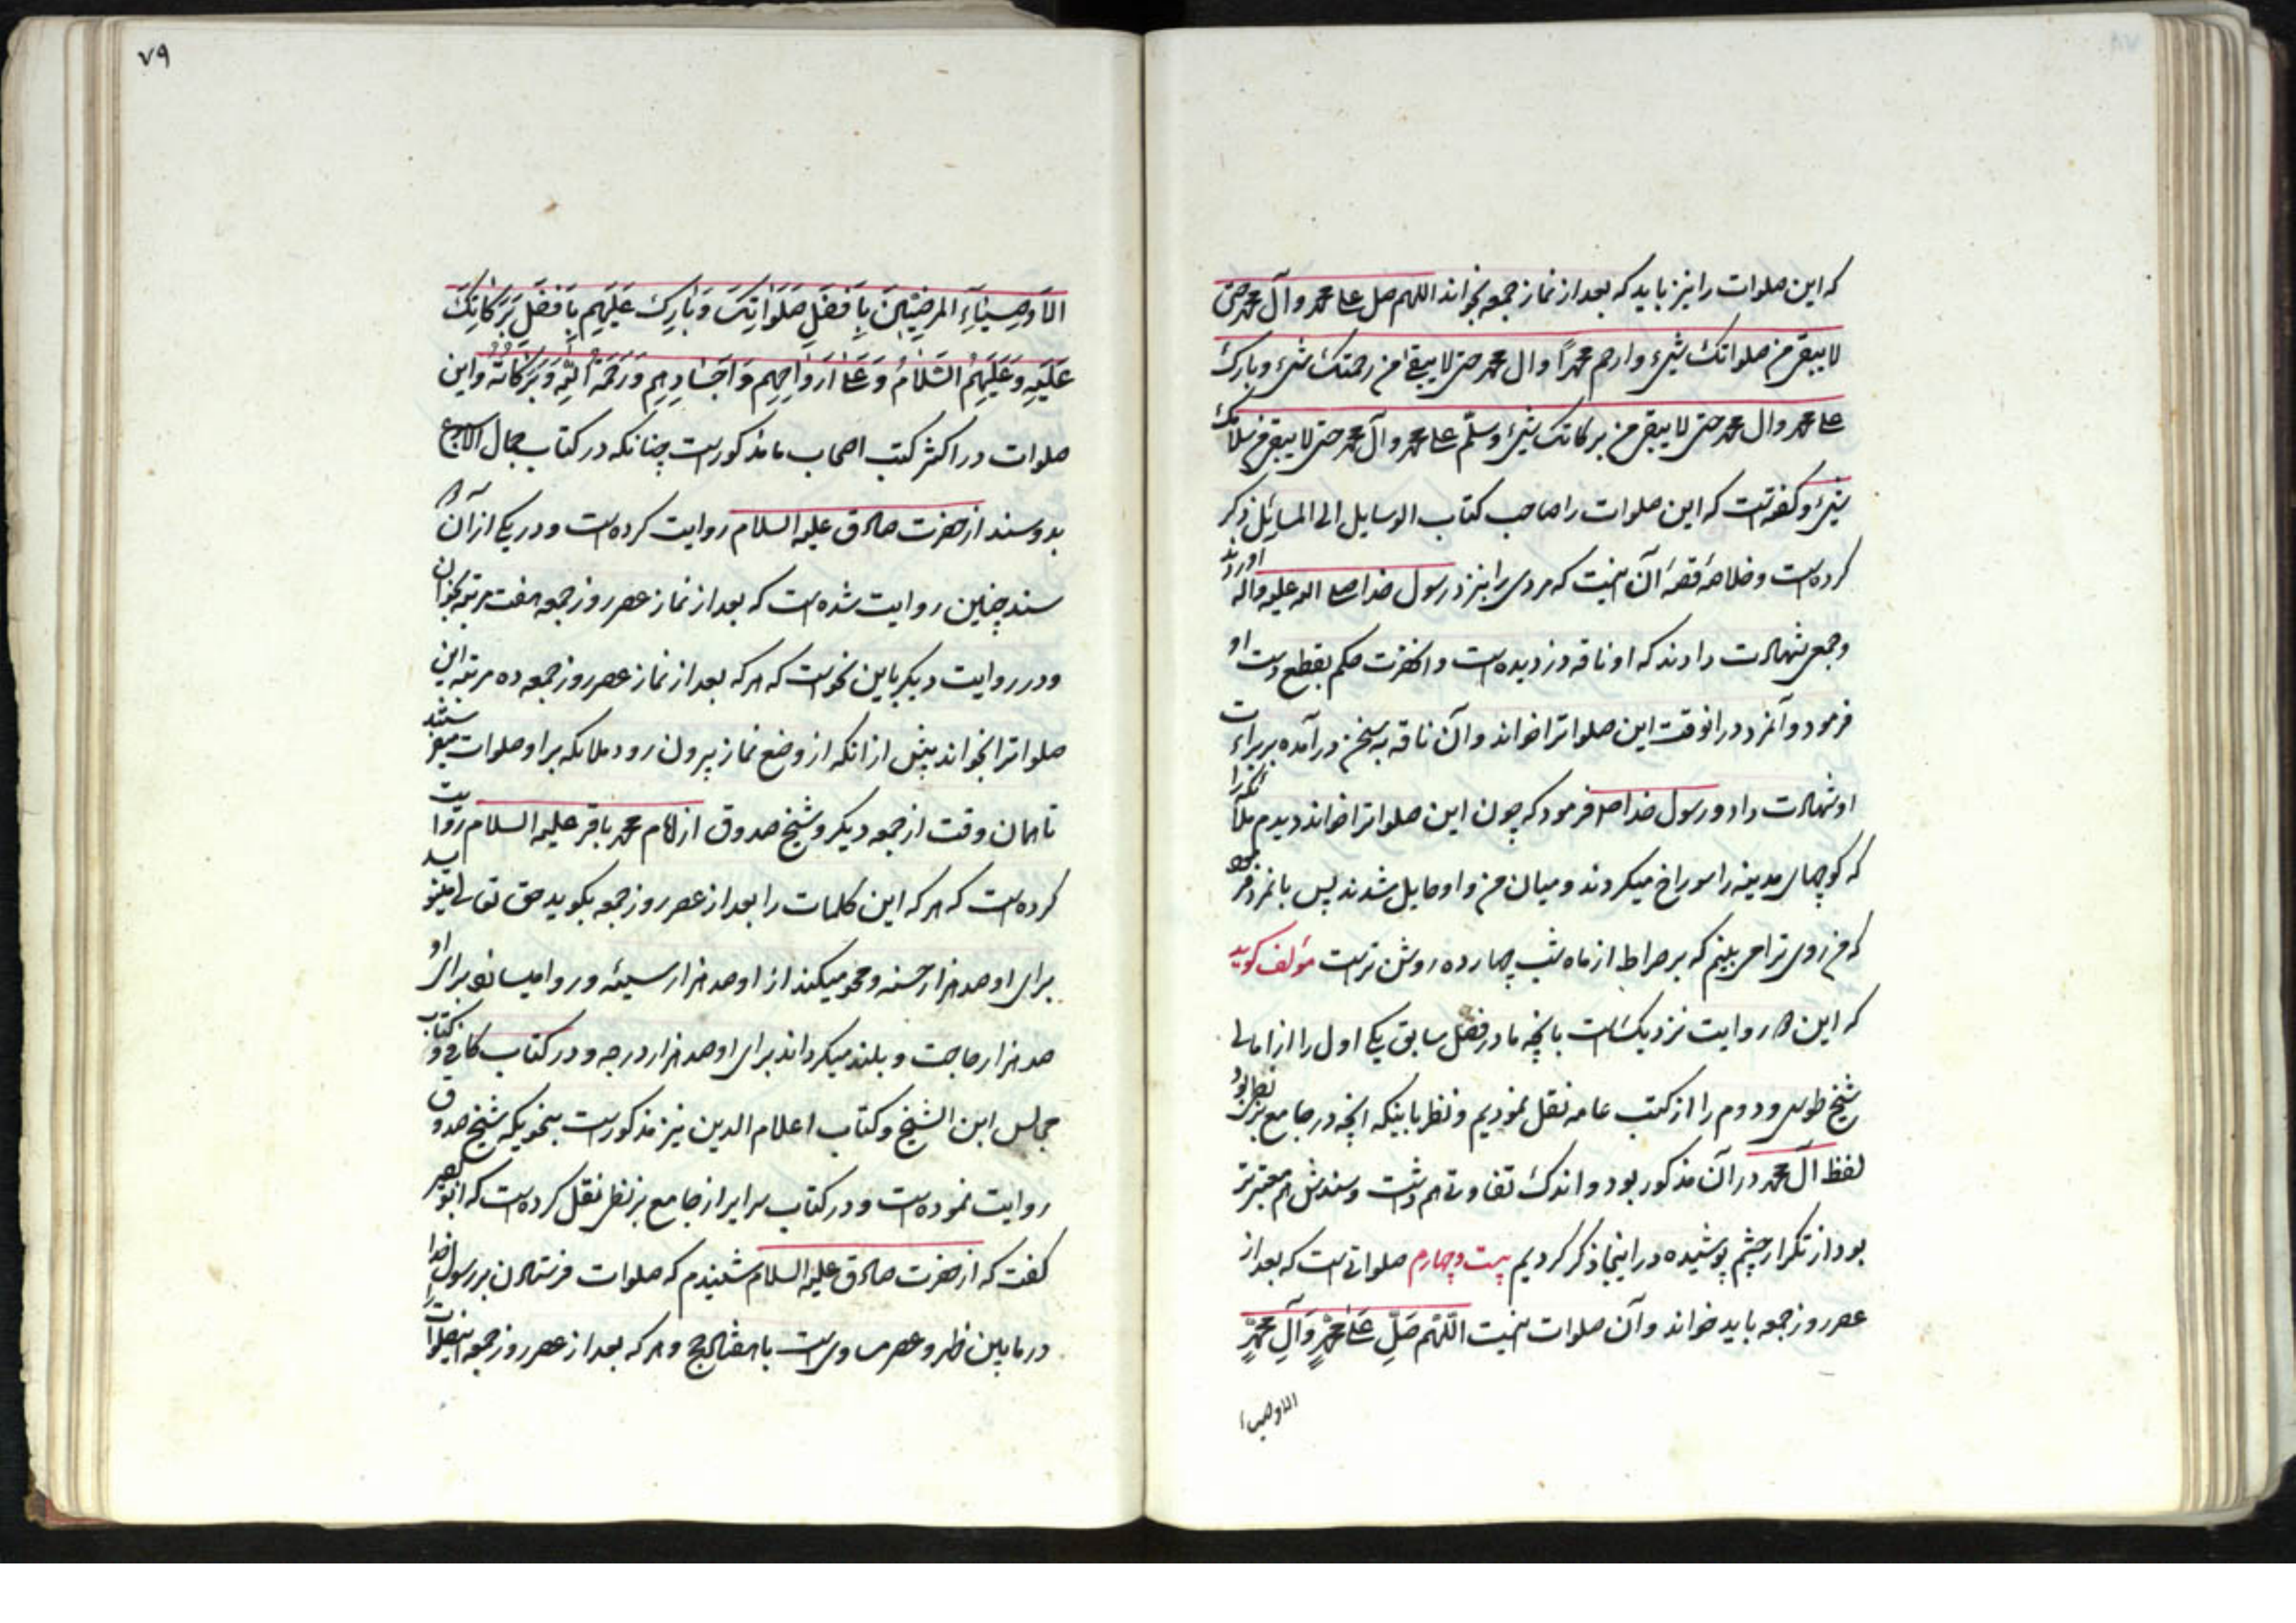 که این صلوات را نیز باید که بعد از نماز جمعه بخواند اللهم صل علی محمد وآل محمد حتی
لا یبقی من صلواتک شیء وارحم محمداً وال محمد حتی لا یبقی من رحمتک شیء وبارک
علی محمد وال محمد حتی لا یبقی من برکاتک شیء وسلّم علی محمد وآل محمد حتی لا یبقی من سلامک
شیء و گفته است که این صلوات را صاحب کتاب الوسایل الی المسائل ذکر
کرده است و خلاصهٔ قصهٔ آن اینست که مردی را بنزد رسول خدا صلی الله علیه واله اوردند
و جمعی شهادت دادند که او ناقه دزدیده است و انحضرت حکم بقطع دست او
فرمود و آنمرد در انوقت این صلواترا خواند و آن ناقه به سخن در آمده بر براءت
او شهادت داد و رسول خدا صلعم فرمود که چون این صلواترا خواند دیدم ملائکه را
که کوچهای مدینه را سوراخ میکردند و میان من و او حایل شدند پس بانمرد فرمود
که من روی ترا می بینم که بر صراط از ماه شب چهارده روشن ترست مؤلف کوید
که این دو روایت نزدیک است بانچه ما در فصل سابق یکی اول را از امالی
شیخ طوسی و دوم را از کتب عامه نقل نمودیم و نظر باینکه انچه در جامع بزنطی بود
لفظ آل محمد در آن مذکور بود و اندک تفاوتی هم داشت و سندش هم معتبرتر
بود از تکرار چشم پوشیده در اینجا ذکر کردیم بیست و چهارم صلواتی است که بعد از
عصر روز جمعه باید خواند و آن صلوات اینست اللّٰهم صَلِّ عَلیٰ محمّدٍ وَآلِ محمّدٍ
الاوصیاء
٧٩
الاَوصِیٰآءِ المرضِیّٖینَ بِاَفضَلِ صَلَوٰاتِکَ وَبٰارِک عَلَیهِم بِاَفضَلِ بَرَکٰاتِکَ
عَلَیهِ وَعَلَیهِمُ السَّلٰامُ وَعَلیٰ اَروٰاحِهِم وَاَجسٰادِهِم وَرَحمَةُ اللّٰهِ وَبَرَکٰاتُهُ واین
صلوات در اکثر کتب اصحاب ما مذکورست چنانکه در کتاب جمال الاسبوع
بدو سند از حضرت صادق علیه السلام روایت کرده است و در یکی از آن دو
سند چنین روایت شده است که بعد از نماز عصر روز جمعه هفت مرتبه بخوان
و در روایت دیکر باین نحوست که هر که بعد از نماز عصر روز جمعه ده مرتبه این
صلواترا بخواند پیش از انکه از وضع نماز بیرون رود ملائکه بر او صلوات میفرستند
تا همان وقت از جمعه دیکر و شیخ صدوق از امام محمد باقر علیه السلام روایت
کرده است که هر که این کلمات را بعد از عصر روز جمعه بکوید حق تعالی مینویسد
برای او صد هزار حسنه و محو میکند از او صد هزار سیئه و روا میسازد برای او
صد هزار حاجت و بلند میکرداند برای او صد هزار درجه و در کتاب کافی و کتاب
مجالس ابن الشیخ و کتاب اعلام الدین نیز مذکورست بنحویکه شیخ صدوق
روایت نموده است و در کتاب سرایر از جامع بزنطی نقل کرده است که ابو بصیر
کفت که از حضرت صادق علیه السلام شنیدم که صلوات فرستادن بر رسول خدا
در ما بین ظهر و عصر مساوی است با هفتاد حج و هر که بعد از عصر روز جمعه اینصلوات را